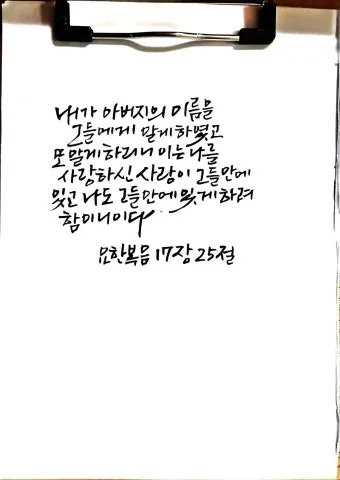 내가 아버지의 이름을
그들에게 알게하였고
또 알게하리니 이는 나를
사랑하신 사랑이 그들안에
있고 나도 그들안에 있게하려
함이니이다
요한복음 17장 25절